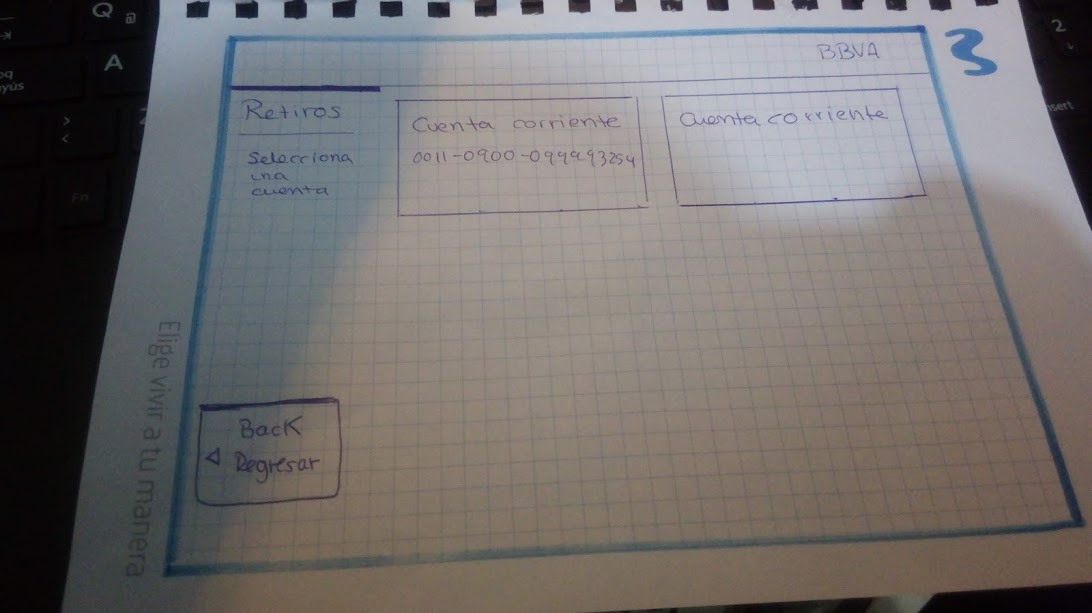 BBVA
3
Retiros
Selecciona
una
cuenta
Cuenta corriente
0011-0900-099993254
Cuenta corriente
Back
Regresar
Elige vivir a tu manera
Q
A
Fn
2